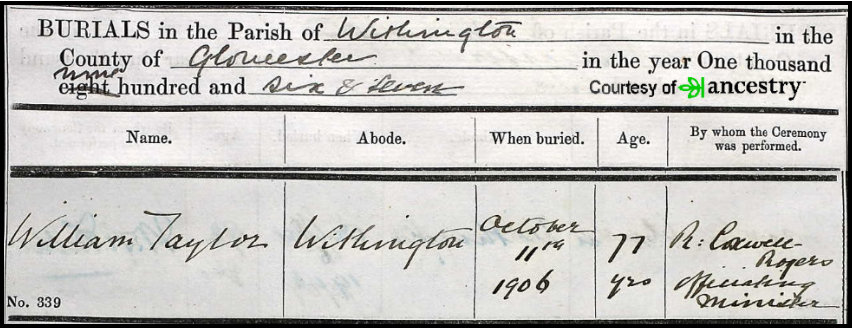 BURIALS in the Parish of Withington in the
County of Gloucester in the year One thousand
nine
eight hundred and six & seven Courtesy of ancestry
Name. Abode. When buried. Age. By whom the Ceremony
was performed.
William Taylor Withington October 11th 1906 77 yrs R: Coxwell-Rogers officiating Minister
No. 339